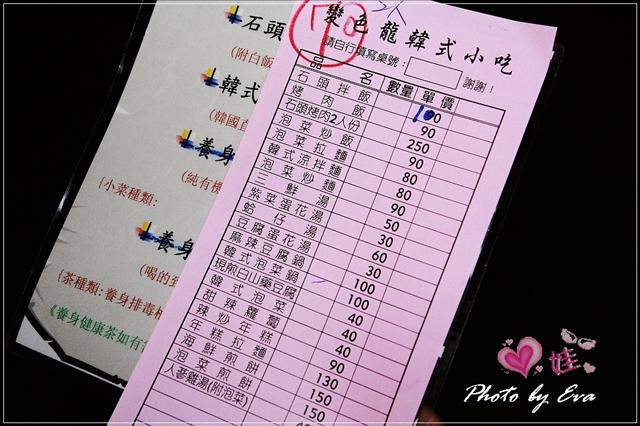 石頭
(附白飯
韓式
(韓國直
養身
(純有機
{小菜種類:
養身
(喝的到
{茶種類:養身排毒
《養身健康茶如有
變色龍韓式小吃
請自行填寫桌號： 謝謝！
品名 數量 單價
石頭拌飯 90
烤肉飯 90
石頭烤肉2人份 250
泡菜炒飯 90
泡菜拉麵 80
韓式涼拌麵 80
泡菜炒麵 90
三鮮湯 50
紫菜蛋花湯 30
蛤仔湯 60
豆腐蛋花湯 30
麻辣豆腐鍋 100
韓式泡菜鍋 100
現煎白山藥豆腐 40
韓式泡菜 40
甜辣蘿蔔 40
辣炒年糕 90
年糕拉麵 130
海鮮煎餅 150
泡菜煎餅 150
人蔘雞湯(附泡菜) 40
娃
Photo by Eva